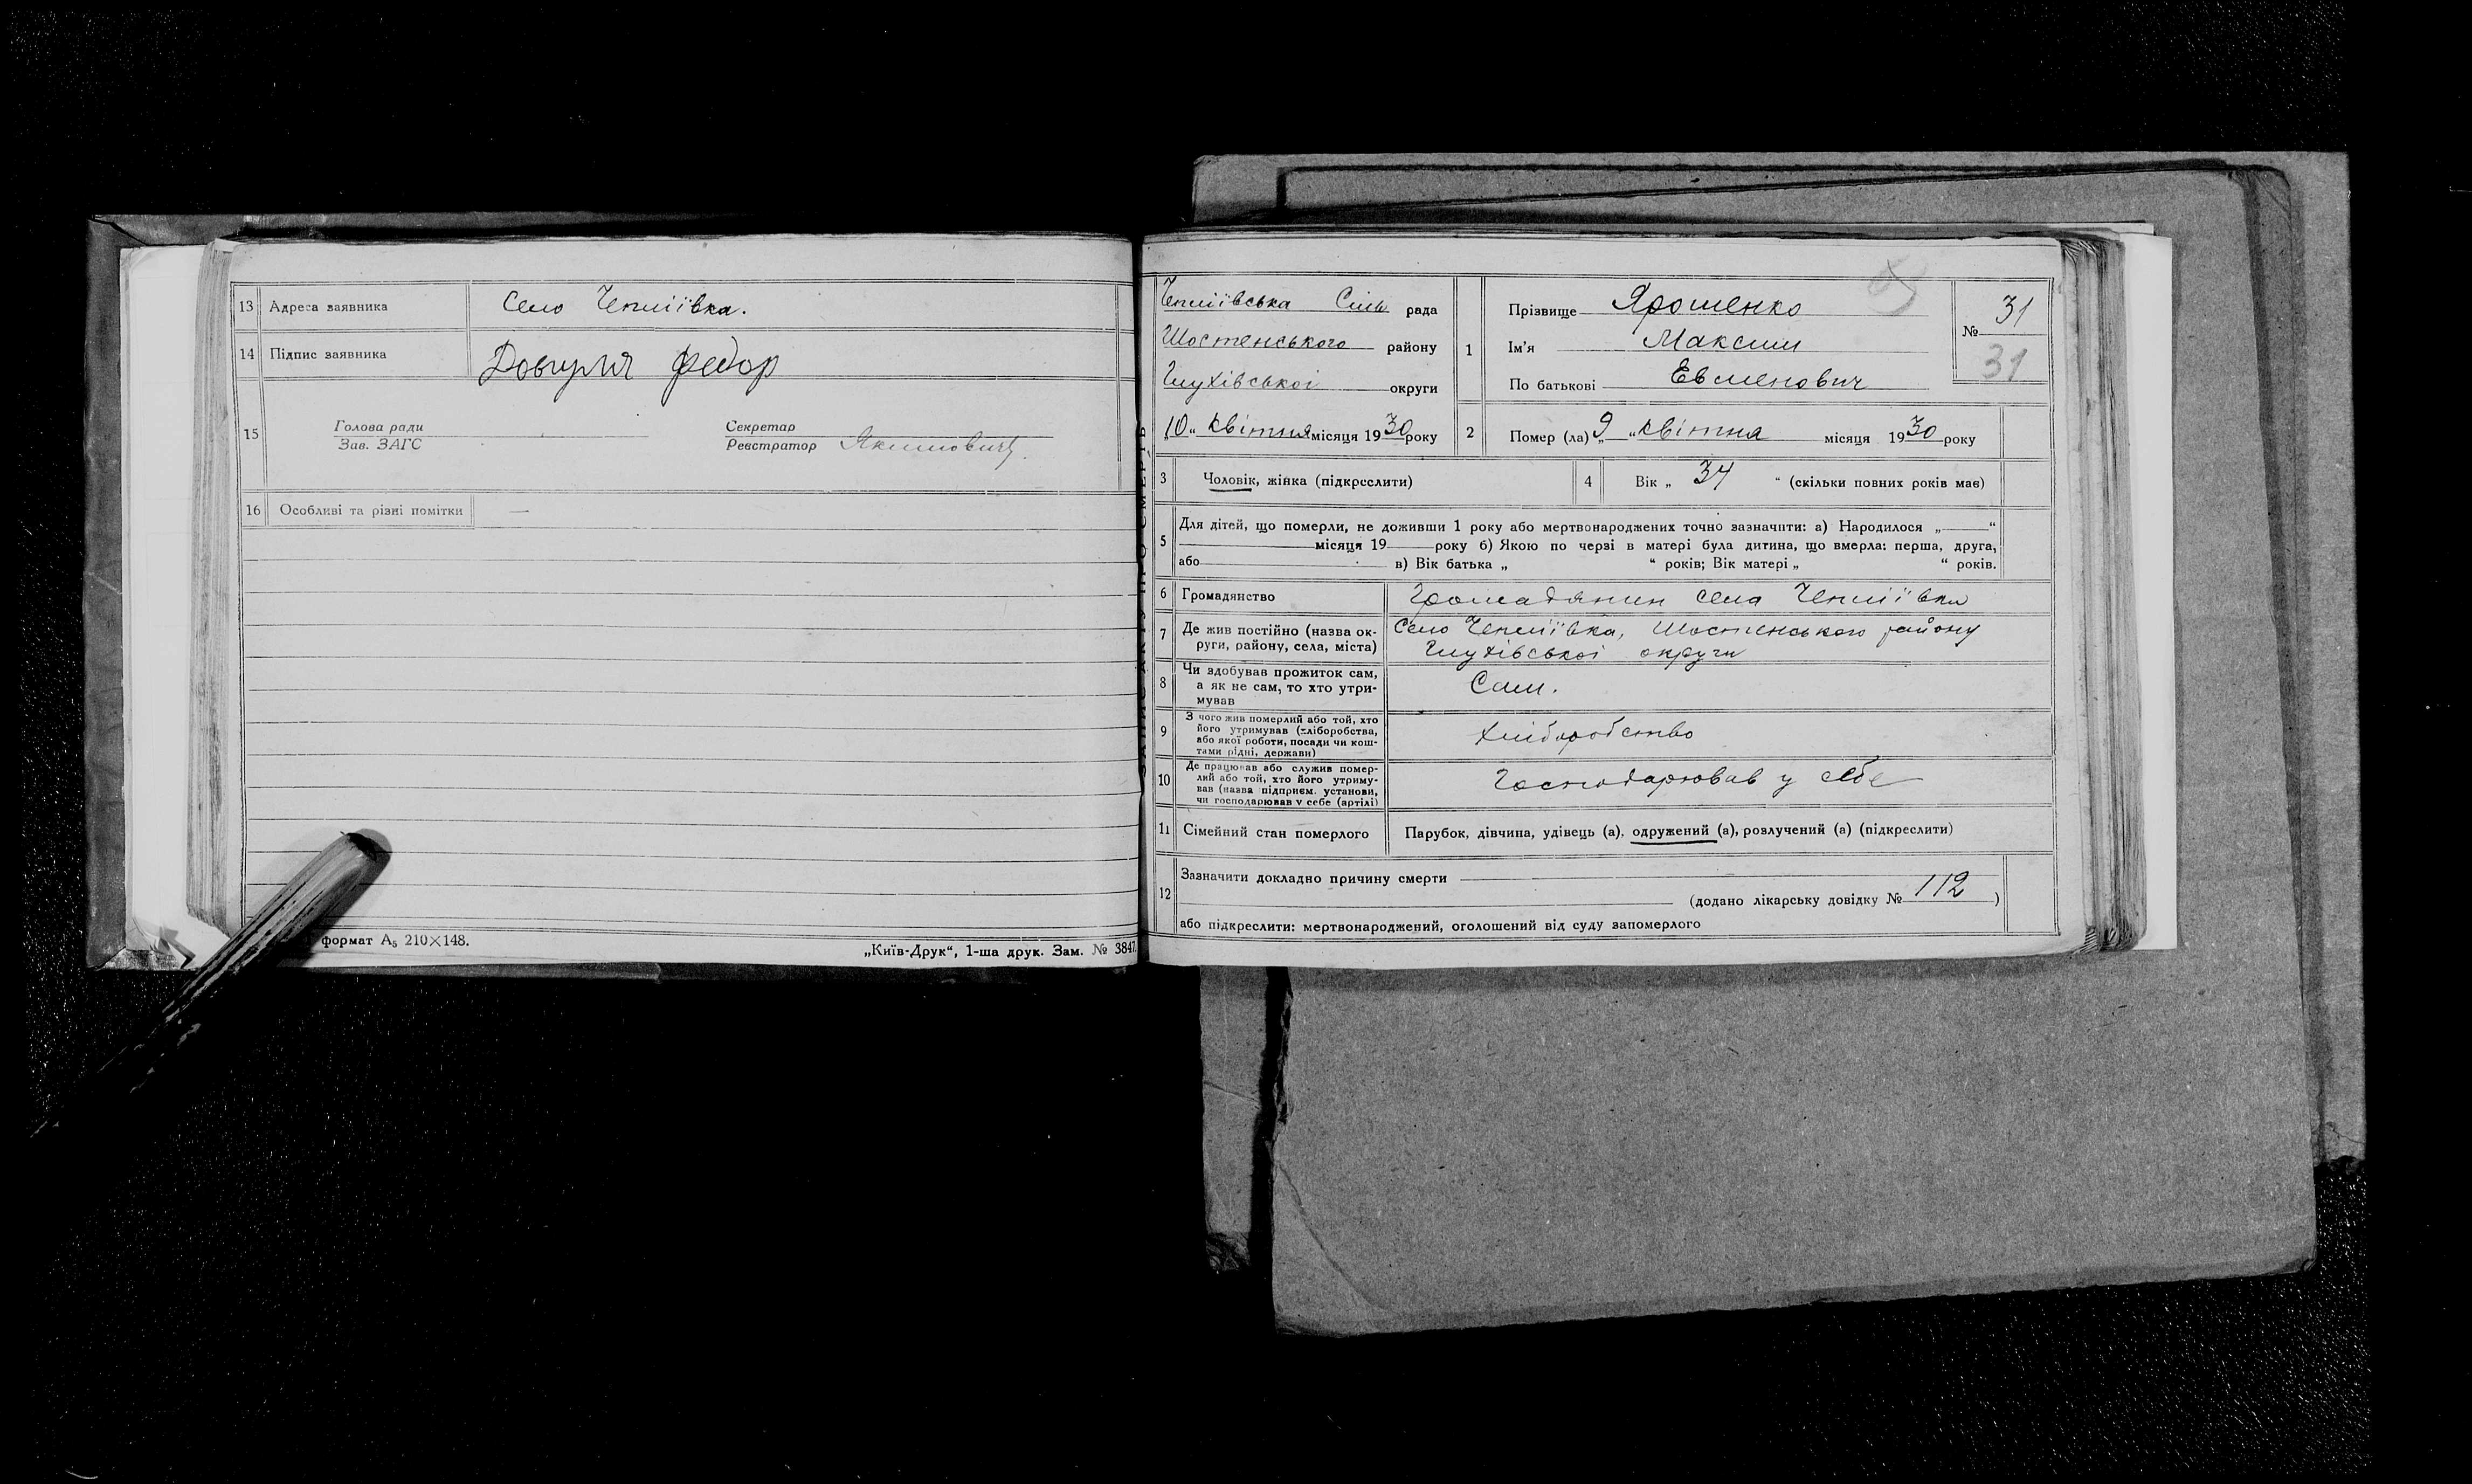 13 Адреса заявника Село Чепліївка.
14 Підпис заявника Довгуля Федор
15 Голова ради Зав. ЗАГС Секретар Реєстратор Якимович
16 Особливі та різні помітки —
формат А5 210×148.
„Київ-Друк“, 1-ша друк. Зам. № 3847.
Чепліївська Сіль рада
Шостенського району
Глухівської округи
„10“ квітня місяця 1930 року
1 Прізвище Ярошенко
Ім'я Максим
По батькові Евменович
№ 31
31
2 Помер (ла) „9“ квітня місяця 1930 року
3 Чоловік, жінка (підкреслити)
4 Вік „ 34 “ (скільки повних років має)
5 Для дітей, що померли, не доживши 1 року або мертвонароджених точно зазначити: а) Народилося „——“
місяця 19 року б) Якою по черзі в матері була дитина, що вмерла: перша, друга,
або в) Вік батька „ “ років; Вік матері „ “ років.
6 Громадянство Громадянин села Чепліївки
7 Де жив постійно (назва ок-
руги, району, села, міста)
Село Чепліївка, Шостенського району
Глухівської округи
8 Чи здобував прожиток сам,
а як не сам, то хто утри-
мував
Сам.
9 З чого жив померлий або той, хто
його утримував (хліборобства,
або якої роботи, посади чи кош-
тами рідні, держави)
Хліборобство
10 Де працював або служив помер-
лий або той, хто його утриму-
вав (назва підприєм. установи,
чи господарював у себе (артілі)
Господарював у себе
11 Сімейний стан померлого Парубок, дівчина, удівець (а), одружений (а), розлучений (а) (підкреслити)
12 Зазначити докладно причину смерти
(додано лікарську довідку № 112 )
або підкреслити: мертвонароджений, оголошений від суду запомерлого